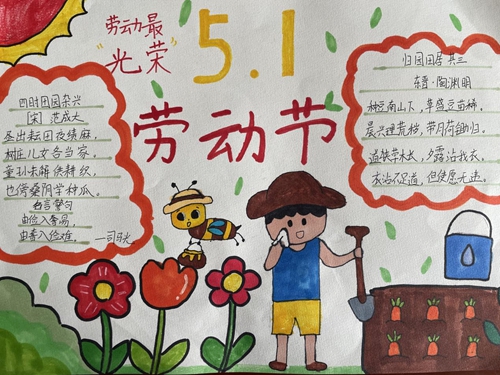 劳动最
"光荣"
5.1
劳动节
四时田园杂兴
[宋] 范成大
昼出耘田夜绩麻，
村庄儿女各当家。
童孙未解供耕织，
也傍桑阴学种瓜。
名言警句
由俭入奢易，
由奢入俭难。——司马光
归园田居 其三
东晋·陶渊明
种豆南山下，草盛豆苗稀。
晨兴理荒秽，带月荷锄归。
道狭草木长，夕露沾我衣。
衣沾不足道，但使愿无违。